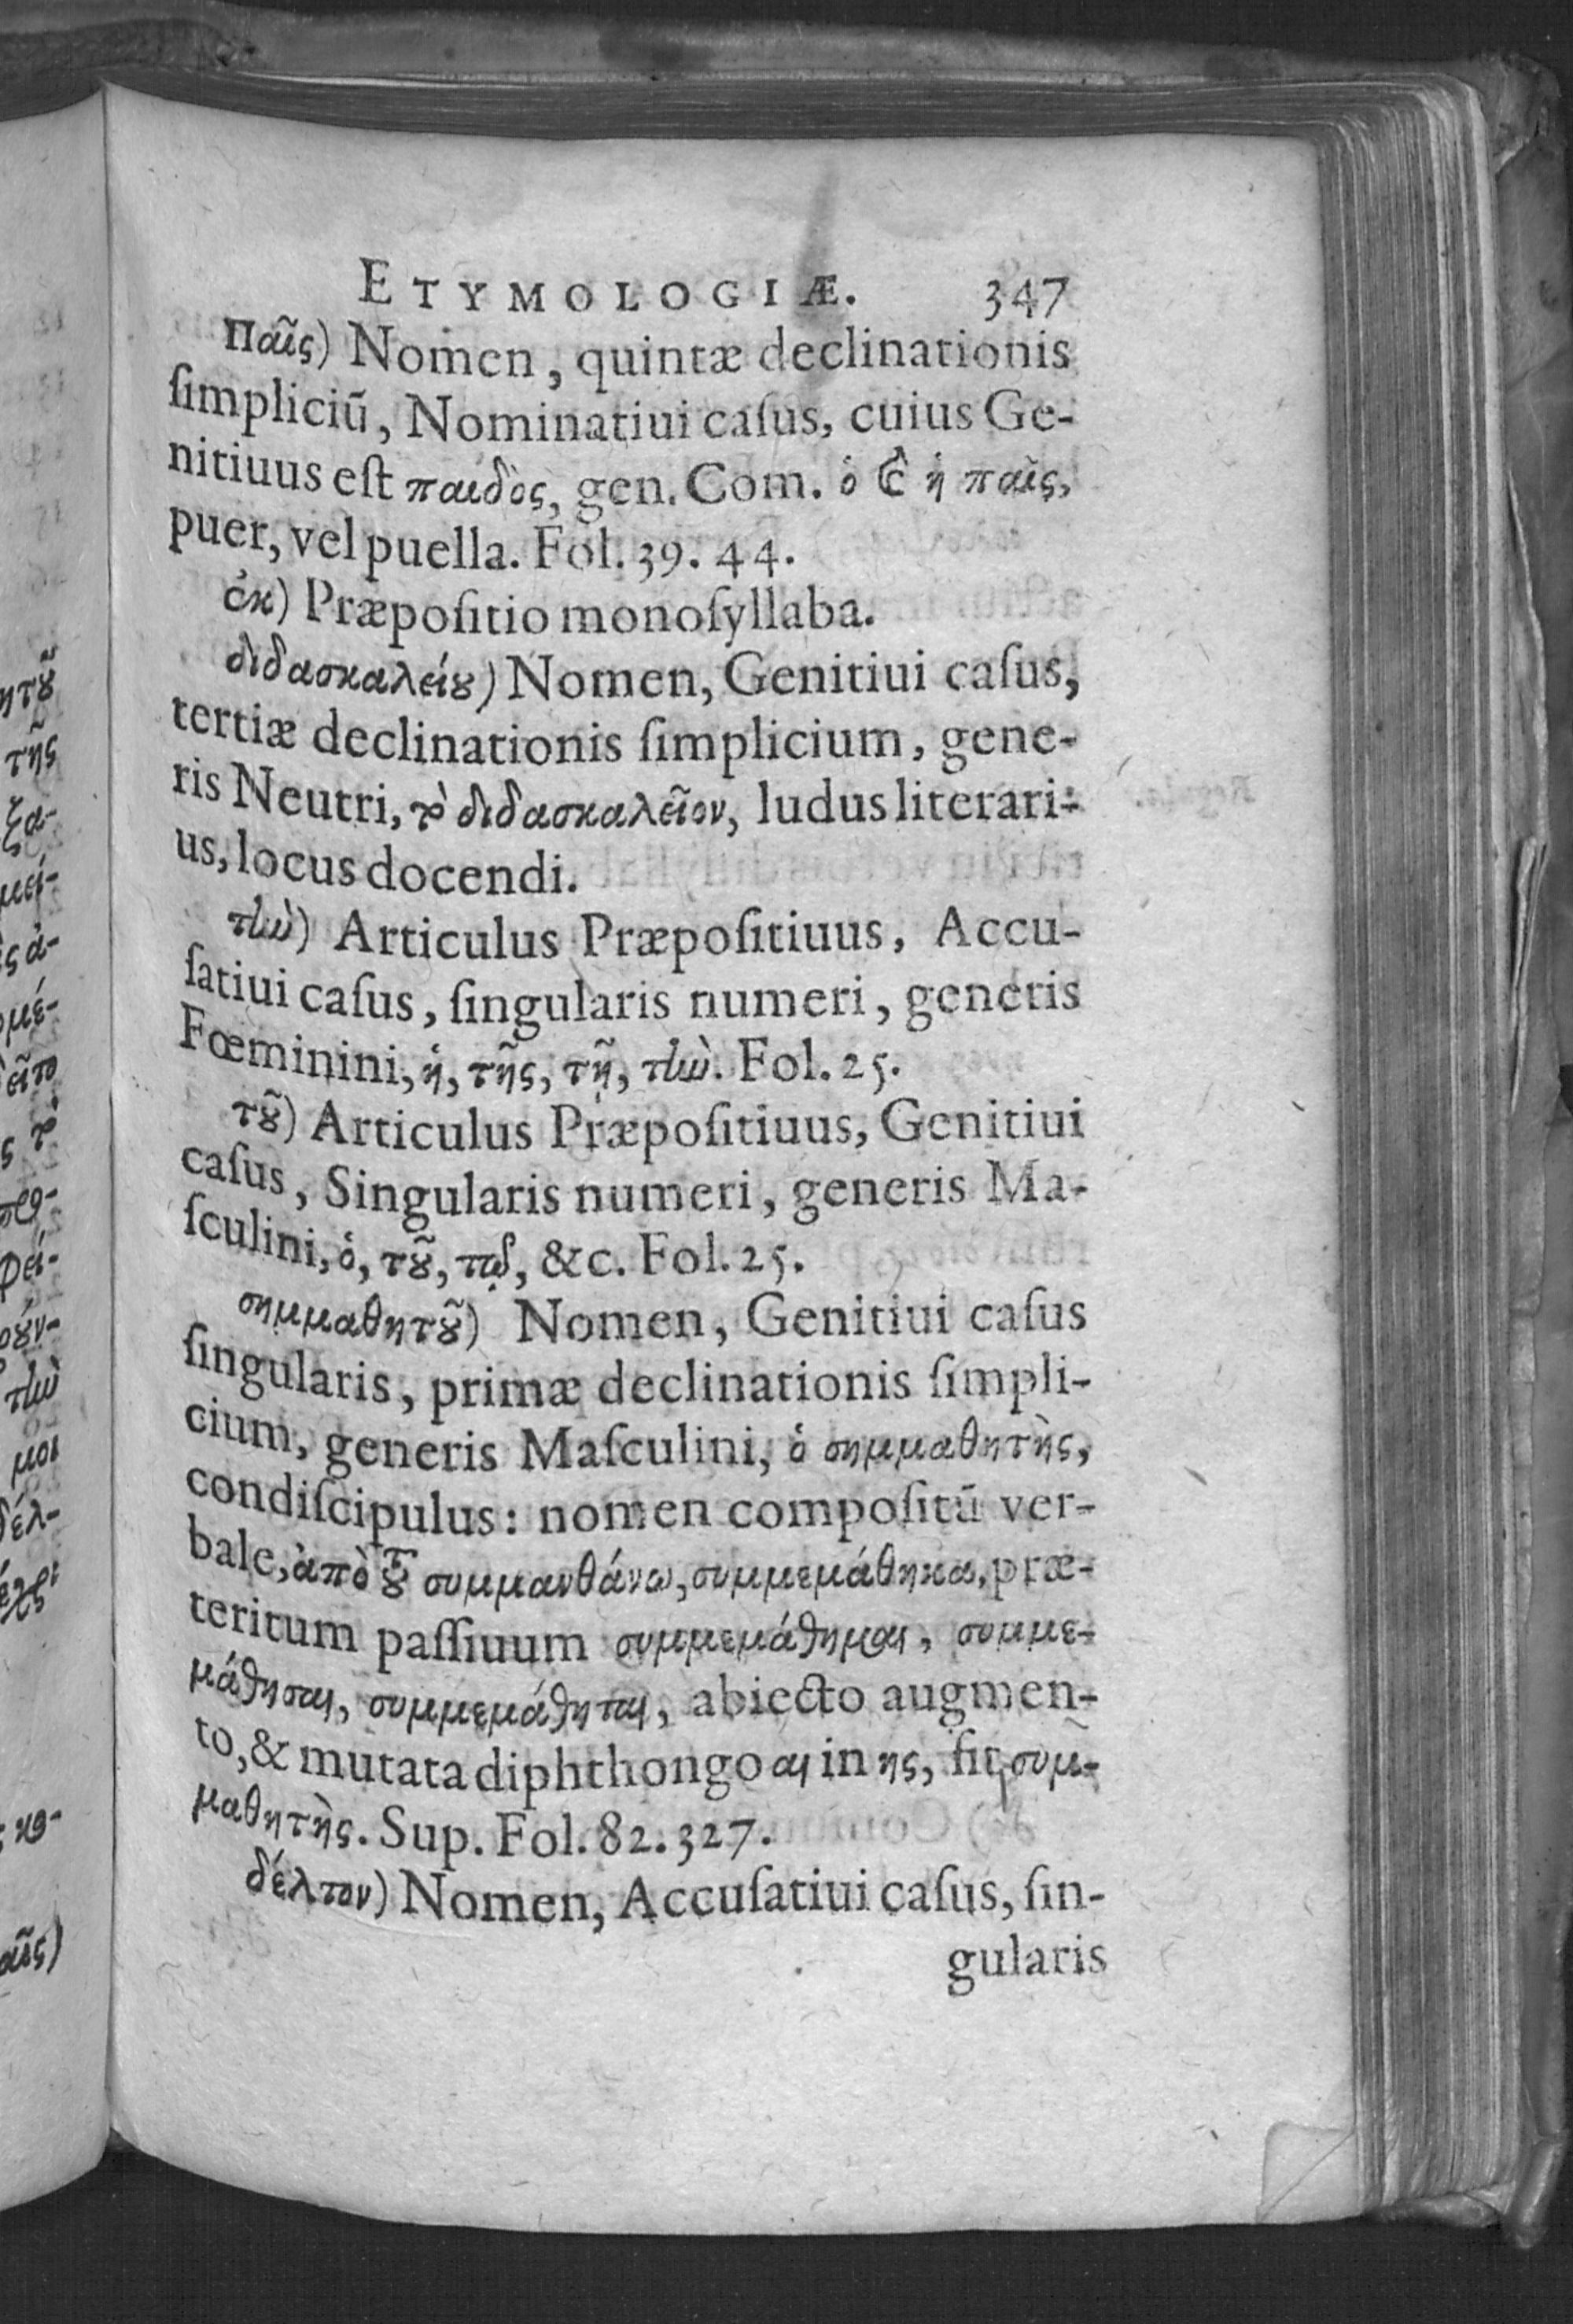 ETYMOLOGIÆ. 347
Παῖς) Nomen, quintæ declinationis
ſimpliciũ, Nominatiui caſus, cuius Ge-
nitiuus eſt παιδὸς, gen. Com. ὁ & ἡ παῖς,
puer, vel puella. Fol. 39. 44.
ἐκ) Præpoſitio monoſyllaba.
διδασκαλείȣ) Nomen, Genitiui caſus,
tertiæ declinationis ſimplicium, gene-
ris Neutri, τὸ διδασκαλεῖον, ludus literari-
us, locus docendi.
τὴν) Articulus Præpoſitiuus, Accu-
ſatiui caſus, ſingularis numeri, generis
Fœminini, ἡ, τῆς, τῇ, τὴν. Fol. 25.
τȣ͂) Articulus Præpoſitiuus, Genitiui
caſus, Singularis numeri, generis Ma-
ſculini, ὁ, τȣ͂, τῷ, &c. Fol. 25.
σημμαθητȣ͂) Nomen, Genitiui caſus
ſingularis, primæ declinationis ſimpli-
cium, generis Maſculini, ὁ σημμαθητὴς,
condiſcipulus: nomen compoſitũ ver-
bale, ἀπὸ τȣ͂ συμμανθάνω, συμμεμάθηκα, præ-
teritum paſſiuum συμμεμάθημαι, συμμε-
μάθησαι, συμμεμάθηται, abiecto augmen-
to, & mutata diphthongo αι in ης, fit συμ-
μαθητὴς. Sup. Fol. 82. 327.
δέλτον) Nomen, Accuſatiui caſus, ſin-
gularis